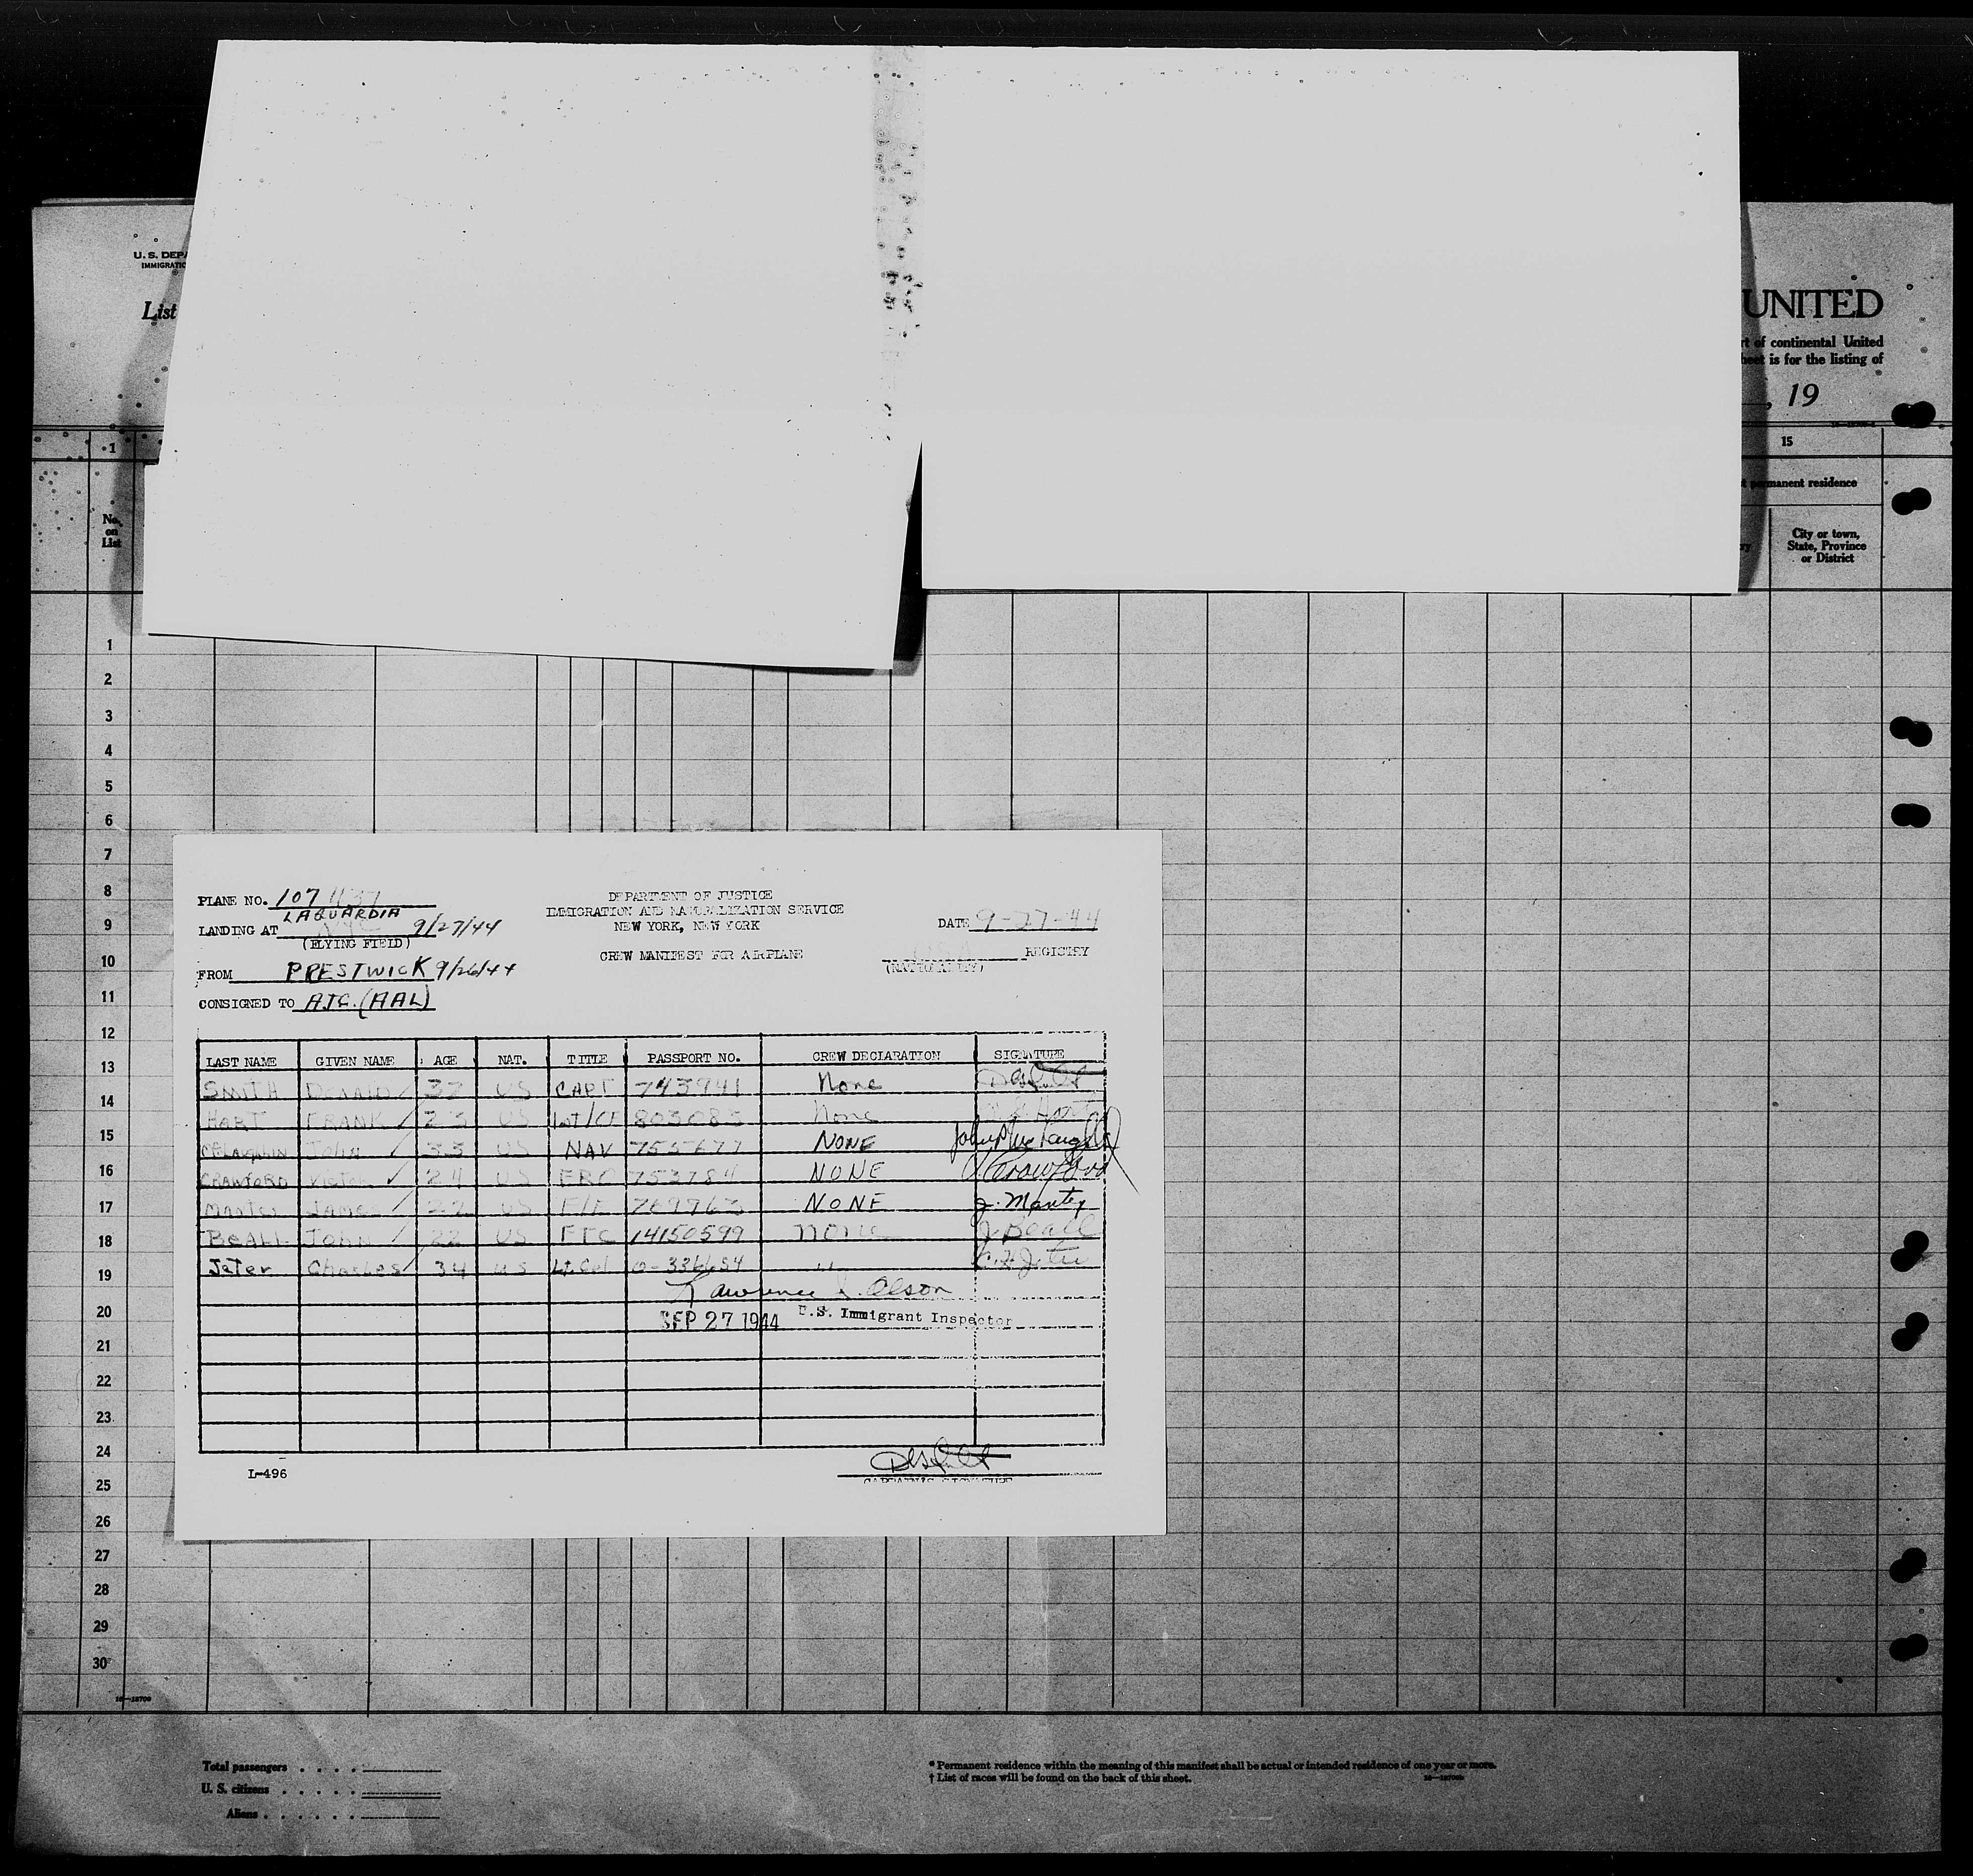 U. S. DEPA
IMMIGRATIO
List
UNITED
rt of continental United
heet is for the listing of
, 19
1
15
No.
on
List
permanent residence
City or town,
State, Province
or District
1
2
3
4
5
6
7
8
9
10
11
12
13
14
15
16
17
18
19
20
21
22
23
24
25
26
27
28
29
30
PLANE NO. 107
LAGUARDIA
LANDING AT 9/27/44
(FLYING FIELD)
FROM PRESTWICK 9/26/44
CONSIGNED TO A.T.C. (AAL)
DEPARTMENT OF JUSTICE
IMMIGRATION AND NATURALIZATION SERVICE
NEW YORK, NEW YORK
CREW MANIFEST FOR AIRPLANE
DATE 9-27-44
REGISTRY
(NATIONALITY)
LAST NAME GIVEN NAME AGE NAT. TITLE PASSPORT NO. CREW DECLARATION SIGNATURE
SMITH DONALD 37 US CAPT 743941 None
HART FRANK 23 US 803083 None
MCLAUGHLIN John 33 US NAV 755677 NONE
CRAWFORD VICTOR 24 US FRO 753784 NONE V. Crawford
JAMES 22 US F/E 769763 NONE J. Manty
BEALL JOHN 22 US FTC 14150599 None J. Beall
Jeter Charles 34 US Lt. Col 0-336684 "
Lawrence Olson
SEP 27 1944 U.S. Immigrant Inspector
L-496
CAPTAIN'S SIGNATURE
16—18709
Total passengers
U. S. citizens
Aliens
* Permanent residence within the meaning of this manifest shall be actual or intended residence of one year or more.
† List of races will be found on the back of this sheet.